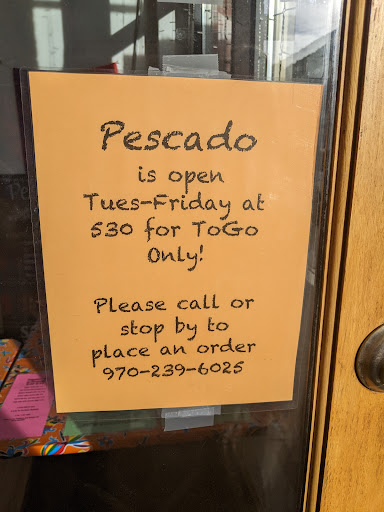 Pescado
is open
Tues-Friday at
530 for ToGo
Only!
Please call or
stop by to
place an order
970-239-6025